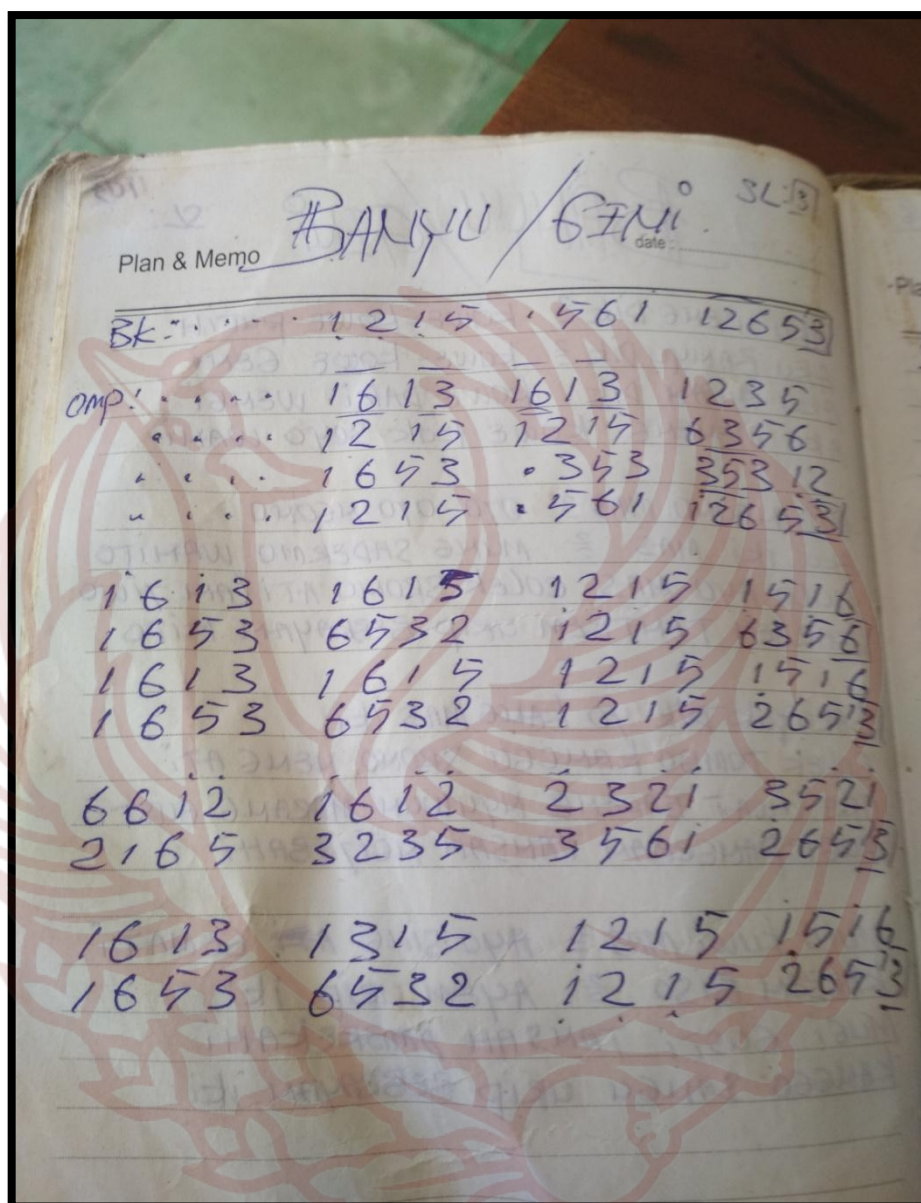 SL : 3
BANYU / GENI
Plan & Memo
date :
BK : . . . . 1 2 1 5 . 5 6 1 1 2 6 5 3
OMP : . . . . 1 6 1 3 1 6 1 3 1 2 3 5
. . . . 1 2 1 5 1 2 1 5 6 3 5 6
. . . . 1 6 5 3 . 3 5 3 3 5 3 1 2
. . . . 1 2 1 5 . 5 6 1 1 2 6 5 3
1 6 1 3 1 6 1 5 1 2 1 5 1 5 1 6
1 6 5 3 6 5 3 2 1 2 1 5 6 3 5 6
1 6 1 3 1 6 1 5 1 2 1 5 1 5 1 6
1 6 5 3 6 5 3 2 1 2 1 5 2 6 5 3
6 6 1 2 1 6 1 2 2 3 2 1 3 5 2 1
2 1 6 5 3 2 3 5 3 5 6 1 2 6 5 3
1 6 1 3 1 3 1 5 1 2 1 5 1 5 1 6
1 6 5 3 6 5 3 2 1 2 1 5 2 6 5 3